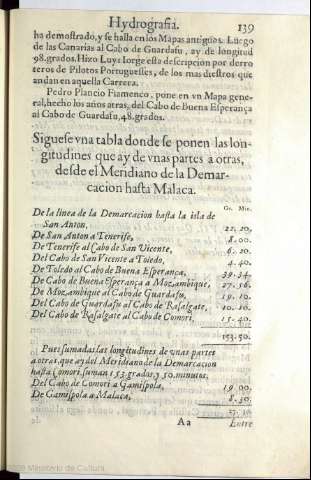 Hydrografia. 139
ha demostrado, y se halla en los Mapas antiguos. Luego
de las Canarias al Cabo de Guardafu, ay de longitud
98. grados. Hizo Luys Iorge esta descripcion por derro
teros de Pilotos Portugueses, de los mas diestros que
andan en aquella Carrera.
Pedro Plancio Flamenco, pone en vn Mapa gene-
ral, hecho los años atras, del Cabo de Buena Esperança
al Cabo de Guardafu, 48. grados.
Siguese vna tabla donde se ponen las lon-
gitudines que ay de vnas partes a otras,
desde el Meridiano de la Demar-
cacion hasta Malaca.
Gr. Min.
De la linea de la Demarcacion hasta la isla de
San Anton, 22. 20,
De San Anton a Tenerife, 8. 00.
De Tenerife al Cabo de San Vicente, 6. 20.
Del Cabo de San Vicente a Toledo, 4. 40.
De Toledo al Cabo de Buena Esperança, 39. 34.
De Cabo de Buena Esperança a Moçambique, 27. 56.
De Moçambique al Cabo de Guardafu, 19. 10.
Del Cabo de Guardafu al Cabo de Rasalgate, 10. 10.
Del Cabo de Rasalgate al Cabo de Comori, 15. 40.
153. 50.
Pues sumadas las longitudines de vnas partes
a otras, que ay del Meridiano de la Demarcacion
hasta Comori, suman 153. grados, y 50. minutos,
Del Cabo de Comori a Gamispola, 19. 00.
De Gamispola a Malaca, 8. 30.
Aa Entre
Ministerio de Cultura